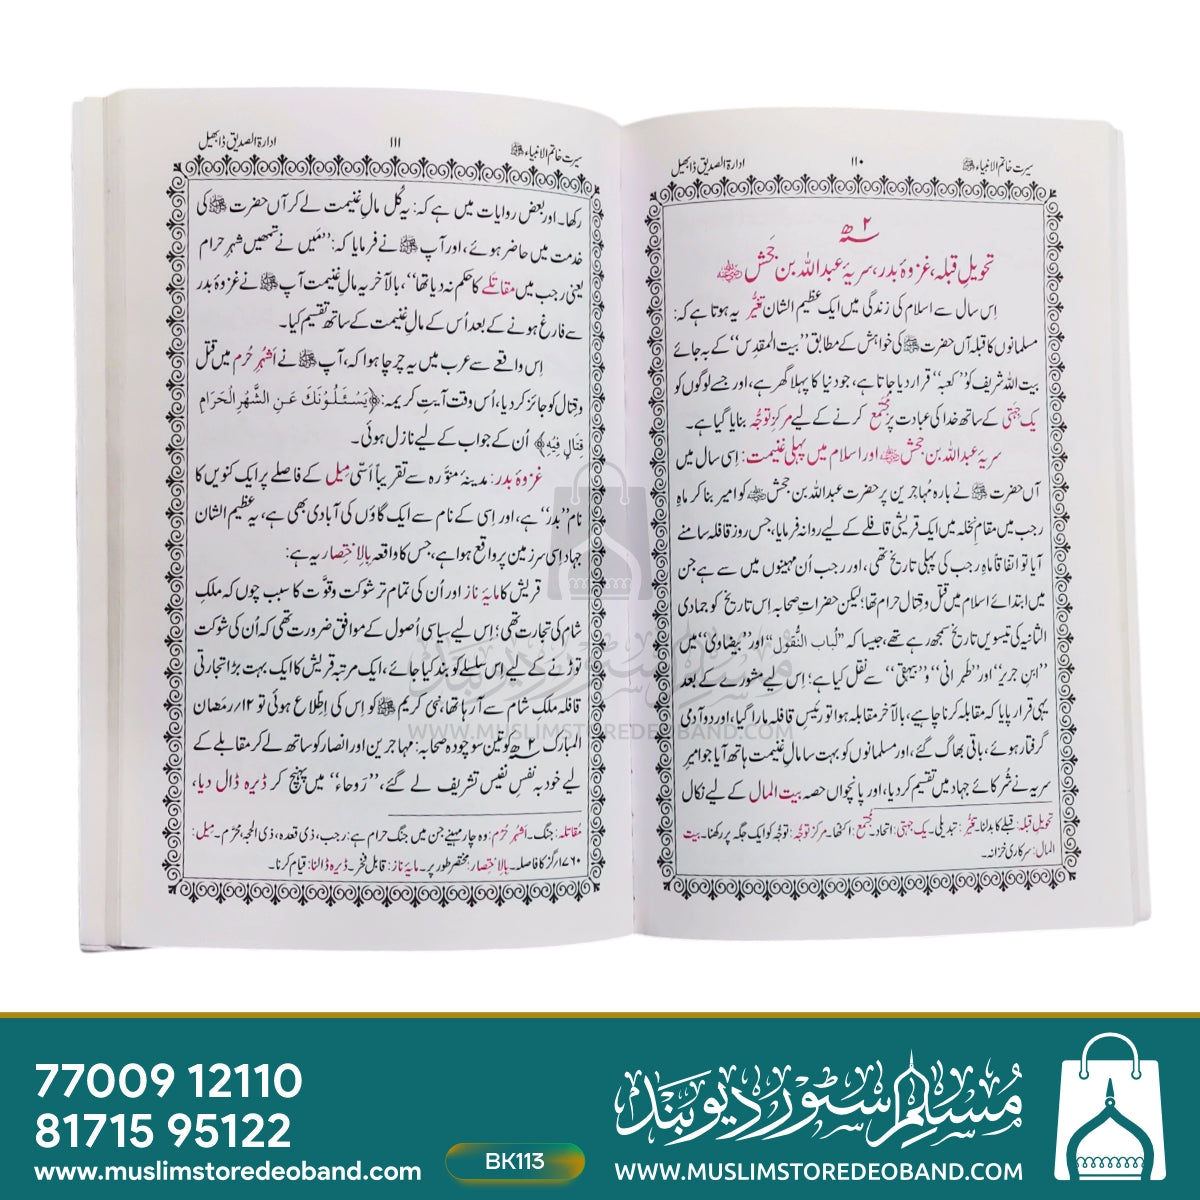 سیرت خاتم الانبیاء ﷺ
۱۱۰
ادارۃ الصدیق ڈابھیل
۲ھ
تحویلِ قبلہ، غزوۂ بدر، سریۂ عبداللہ بن جَحش ؓ
اِس سال سے اسلام کی زندگی میں ایک عظیم الشان تغیُّر یہ ہوتا ہے کہ:
مسلمانوں کا قبلہ آں حضرت ﷺ کی خواہش کے مطابق ’’بیت المقدِس‘‘ کے بہ جائے
بیت اللہ شریف کو ’’کعبہ‘‘ قرار دیا جاتا ہے، جو دنیا کا پہلا گھر ہے، اور جسے لوگوں کو
یک جہتی کے ساتھ خدا کی عبادت پر مُجتَمِع کرنے کے لیے مرکزِ توجُّہ بنایا گیا ہے۔
سریۂ عبداللہ بن جحش ؓ اور اسلام میں پہلی غنیمت: اِسی سال میں
آں حضرت ﷺ نے بارہ مُہاجرین پر حضرت عبداللہ بن جحش ؓ کو امیر بنا کر ماہِ
رجب میں مقامِ نَخلہ میں ایک قریشی قافلے کے لیے روانہ فرمایا، جس روز قافلہ سامنے
آیا تو اتفاقاً ماہِ رجب کی پہلی تاریخ تھی، اور رجب اُن مہینوں میں سے ہے جن
میں ابتدائے اسلام میں قتل وقِتال حرام تھا؛ لیکن حضراتِ صحابہ اِس تاریخ کو جمادی
الثانیہ کی تیسویں تاریخ سمجھ رہے تھے، جیسا کہ ’’لُباب النُّقُول‘‘ اور ’’بیضاوی‘‘ میں
’’ابنِ جریر‘‘ اور ’’طبرانی‘‘ و ’’بیہقی‘‘ سے نقل کیا ہے؛ اِس لیے مشورے کے بعد
یہی قرار پایا کہ مقابلہ کرنا چاہیے، بالآخر مقابلہ ہوا تو رئیسِ قافلہ مارا گیا، اور دو آدمی
گرفتار ہوئے، باقی بھاگ گئے، اور مسلمانوں کو بہت سا مالِ غنیمت ہاتھ آیا جو امیرِ
سریہ نے شُرکائے جہاد میں تقسیم کر دیا، اور پانچواں حصہ بیت المال کے لیے نکال
تحویلِ قبلہ: قبلے کا بدلنا۔ تغیُّر: تبدیلی۔ یک جہتی: اتحاد۔ مُجتَمِع: اکٹھا۔ مرکزِ توجُّہ: توجُّہ کو ایک جگہ پر رکھنا۔ بیت
المال: سرکاری خزانہ۔
سیرت خاتم الانبیاء ﷺ
۱۱۱
ادارۃ الصدیق ڈابھیل
رکھا۔ اور بعض روایات میں ہے کہ: یہ کُل مالِ غنیمت لے کر آں حضرت ﷺ کی
خدمت میں حاضر ہوئے، اور آپ ﷺ نے فرمایا کہ: ’’مَیں نے تمھیں شہرِ حرام
یعنی رجب میں مُقاتَلے کا حکم نہ دیا تھا‘‘، بالآخر یہ مالِ غنیمت آپ ﷺ نے غزوۂ بدر
سے فارغ ہونے کے بعد اُس کے مالِ غنیمت کے ساتھ تقسیم کیا۔
اِس واقعے سے عرب میں یہ چرچا ہوا کہ، آپ ﷺ نے اَشہُرِ حُرم میں قتل
وقِتال کو جائز کر دیا، اُس وقت آیتِ کریمہ: ﴿يَسْـَٔلُوْنَكَ عَنِ الشَّهْرِ الْحَرَامِ
قِتَالٍ فِيْهِ﴾ اُن کے جواب کے لیے نازل ہوئی۔
غزوۂ بدر: مدینۂ منوَّرہ سے تقریباً اَسّی مِیل کے فاصلے پر ایک کنویں کا
نام ’’بدر‘‘ ہے، اور اِسی کے نام سے ایک گاؤں کی آبادی بھی ہے، یہ عظیم الشان
جہاد اِسی سرزمین پر واقع ہوا ہے، جس کا واقعہ بِالِاختِصار یہ ہے:
قریش کا مایۂ ناز اور اُن کی تمام تر شوکت وقوَّت کا سبب چوں کہ ملکِ
شام کی تجارت تھی؛ اِس لیے سیاسی اُصول کے موافق ضرورت تھی کہ اُن کی شوکت
توڑنے کے لیے اِس سلسلے کو بند کیا جائے، ایک مرتبہ قریش کا ایک بہت بڑا تجارتی
قافلہ ملکِ شام سے آ رہا تھا، نبیٔ کریم ﷺ کو اِس کی اِطِّلاع ہوئی تو ۱۲؍ رمَضان
المبارک ۲ھ کو تین سو چودہ صحابہ: مہاجرین اور انصار کو ساتھ لے کر مقابلے کے
لیے خود بہ نفسِ نفیس تشریف لے گئے، ’’رَوحاء‘‘ میں پہنچ کر ڈیرہ ڈال دیا،
مُقاتلہ: جنگ۔ اَشہُرِ حُرُم: وہ چار مہینے جن میں جنگ حرام ہے: رجب، ذی قعدہ، ذی الحجہ، محرَّم۔ مِیل:
۱۷۶۰؍ گز کا فاصلہ۔ بِالِاختِصار: مختصر طور پر۔ مایۂ ناز: قابلِ فخر۔ ڈیرہ ڈالنا: قیام کرنا۔
مسلم سٹور دیوبند
WWW.MUSLIMSTOREDEOBAND.COM
77009 12110
81715 95122
www.muslimstoredeoband.com
BK113
مُسلِم سٹور دیوبند
WWW.MUSLIMSTOREDEOBAND.COM